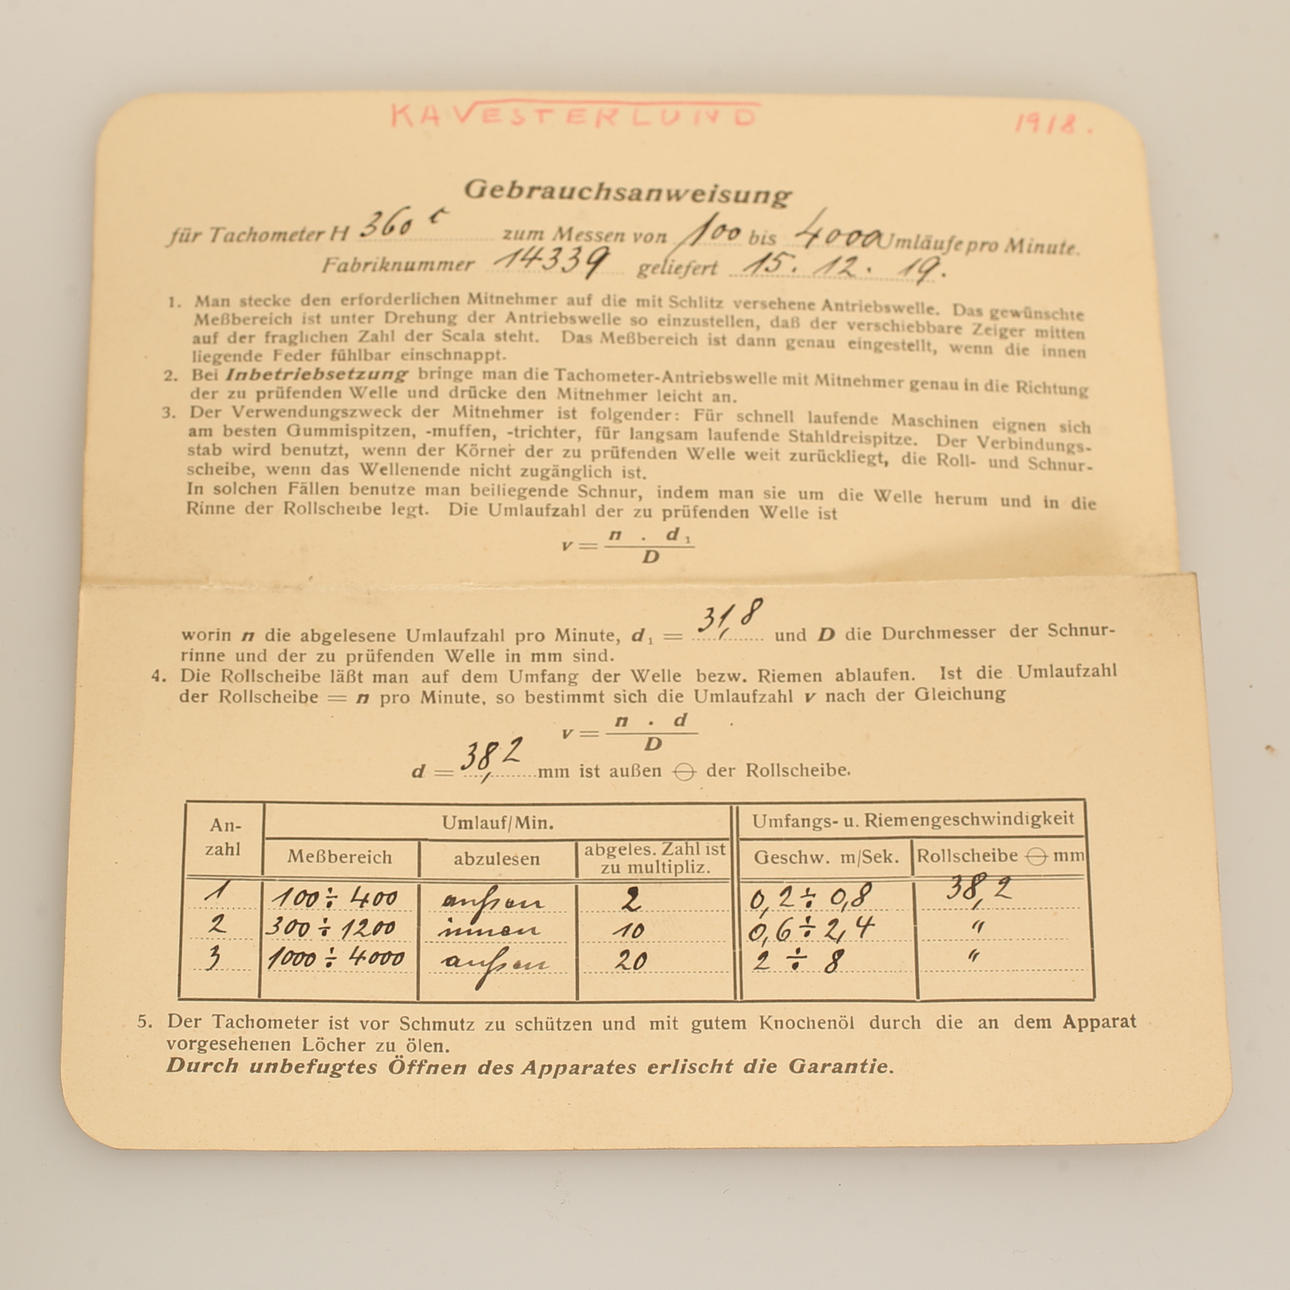 KAVESTERLUND 1918.
Gebrauchsanweisung
für Tachometer H 360 c zum Messen von 100 bis 4000 Umläufe pro Minute.
Fabriknummer 14339 geliefert 15. 12. 19.
1. Man stecke den erforderlichen Mitnehmer auf die mit Schlitz versehene Antriebswelle. Das gewünschte
Meßbereich ist unter Drehung der Antriebswelle so einzustellen, daß der verschiebbare Zeiger mitten
auf der fraglichen Zahl der Scala steht. Das Meßbereich ist dann genau eingestellt, wenn die innen
liegende Feder fühlbar einschnappt.
2. Bei Inbetriebsetzung bringe man die Tachometer-Antriebswelle mit Mitnehmer genau in die Richtung
der zu prüfenden Welle und drücke den Mitnehmer leicht an.
3. Der Verwendungszweck der Mitnehmer ist folgender: Für schnell laufende Maschinen eignen sich
am besten Gummispitzen, -muffen, -trichter, für langsam laufende Stahldreispitze. Der Verbindungs-
stab wird benutzt, wenn der Körner der zu prüfenden Welle weit zurückliegt, die Roll- und Schnur-
scheibe, wenn das Wellenende nicht zugänglich ist.
In solchen Fällen benutze man beiliegende Schnur, indem man sie um die Welle herum und in die
Rinne der Rollscheibe legt. Die Umlaufzahl der zu prüfenden Welle ist
v = n . d₁ / D
worin n die abgelesene Umlaufzahl pro Minute, d₁ = 31,8 und D die Durchmesser der Schnur-
rinne und der zu prüfenden Welle in mm sind.
4. Die Rollscheibe läßt man auf dem Umfang der Welle bezw. Riemen ablaufen. Ist die Umlaufzahl
der Rollscheibe = n pro Minute, so bestimmt sich die Umlaufzahl v nach der Gleichung
v = n . d / D
d = 38,2 mm ist außen ⊖ der Rollscheibe.
An-zahl Umlauf/Min. Umfangs- u. Riemengeschwindigkeit
Meßbereich abzulesen abgeles. Zahl ist zu multipliz. Geschw. m/Sek. Rollscheibe ⊖ mm
1 100 ÷ 400 außen 2 0,2 ÷ 0,8 38,2
2 300 ÷ 1200 innen 10 0,6 ÷ 2,4 "
3 1000 ÷ 4000 außen 20 2 ÷ 8 "
5. Der Tachometer ist vor Schmutz zu schützen und mit gutem Knochenöl durch die an dem Apparat
vorgesehenen Löcher zu ölen.
Durch unbefugtes Öffnen des Apparates erlischt die Garantie.